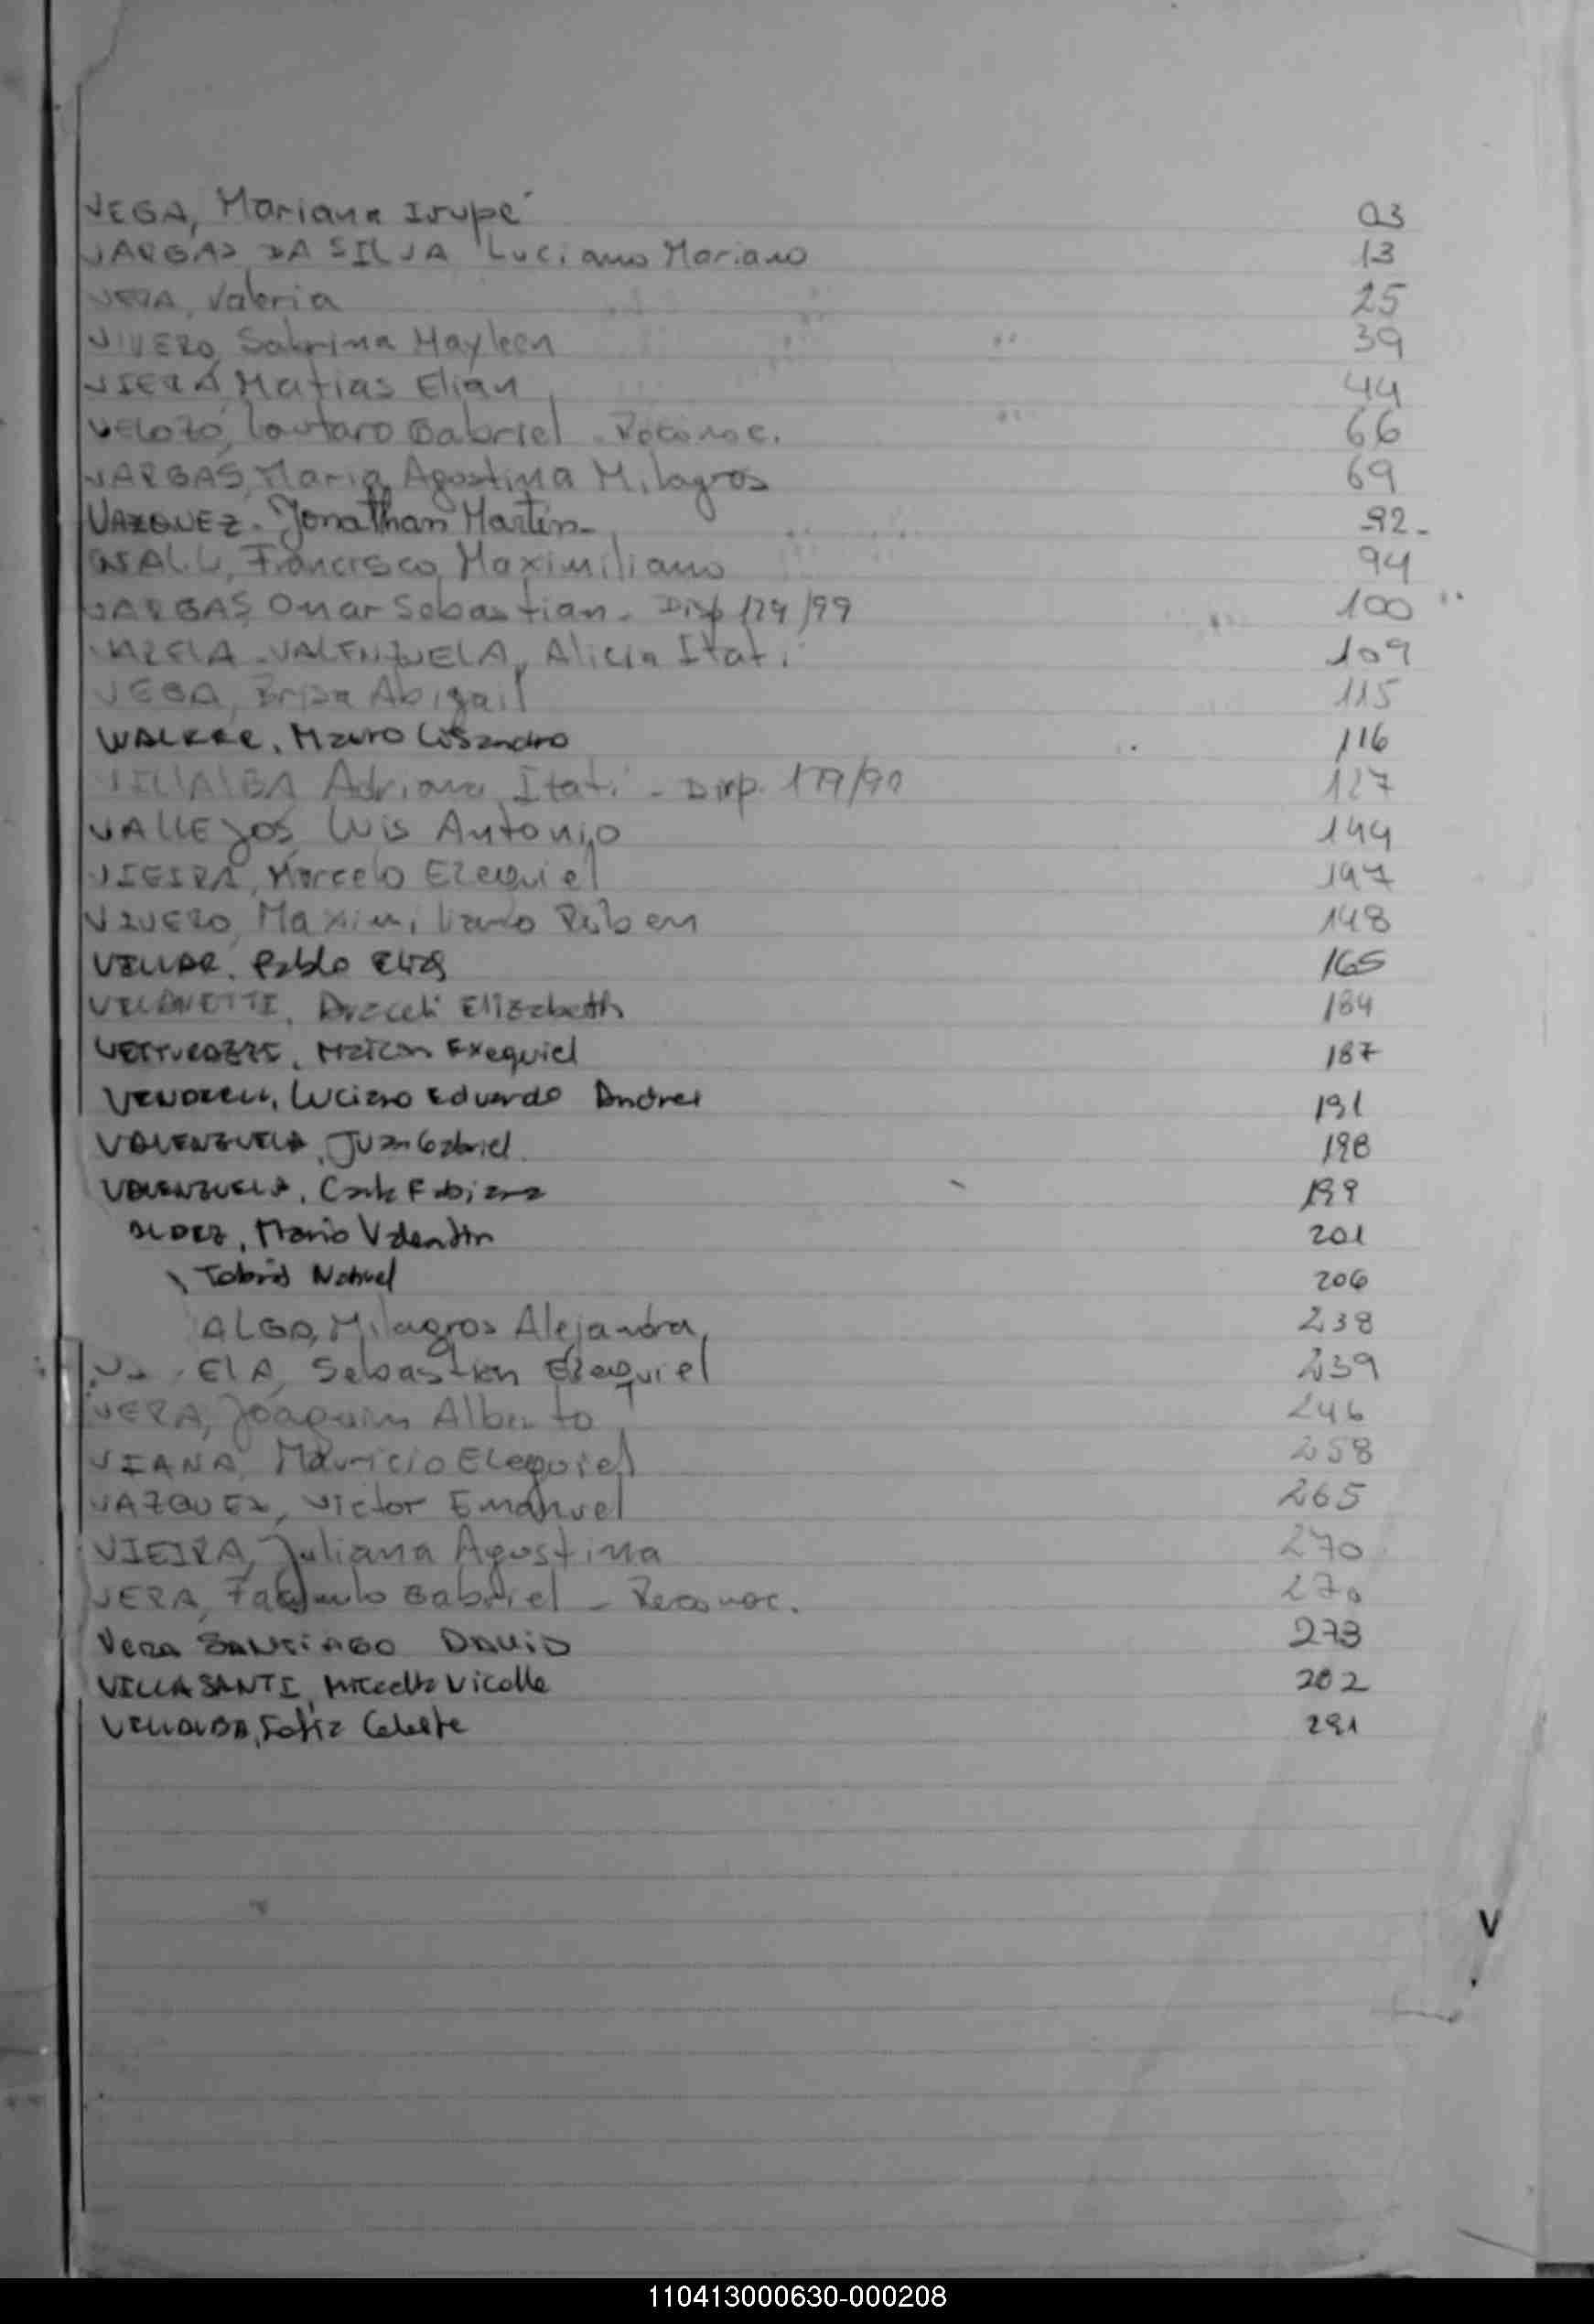 VEGA, Mariana Irupé 03
VARGAS DA SILVA Luciano Mariano 13
VERA, Valeria 25
VIVERO, Sabrina Mayleen 39
VIERA, Matias Elian 44
VELOZO, Lautaro Gabriel - Reconoc. 66
VARGAS, Maria Agostina Milagros 69
VAZQUEZ. Jonathan Martin- -92-
WALL, Francisco Maximiliano 94
VARGAS, Omar Sebastian - Disp 174/99 100
VALENZUELA, Alicia Itatí 109
VEGA, Brisa Abigail 115
WALKER, Mauro Lisandro 116
VILLALBA Adriana Itatí - Disp. 179/99 127
VALLEJOS, Luis Antonio 144
VIEIRA, Marcelo Ezequiel 147
VIVERO, Maximiliano Ruben 148
VILLAR, Pablo Elias 165
Araceli Elizabeth 184
Exequiel 187
Luciano Eduardo Andres 191
VALENZUELA, Juan Gabriel 198
VALENZUELA, Carla Fabiana 199
ALDEZ, Mario Valentin 201
Nahuel 206
ALGO, Milagros Alejandra, 238
ELA, Sebastian Ezequiel 239
VERA, Joaquin Alberto 246
VIANA, Mauricio Ezequiel 258
VAZQUEZ, Victor Emanuel 265
VIEIRA, Juliana Agostina 270
VERA, Facundo Gabriel - Reconoc. 270
Vera SANTIAGO DAVID 273
VILLASANTI, 282
VILLALBA, Sofia Celeste 291
V
110413000630-000208